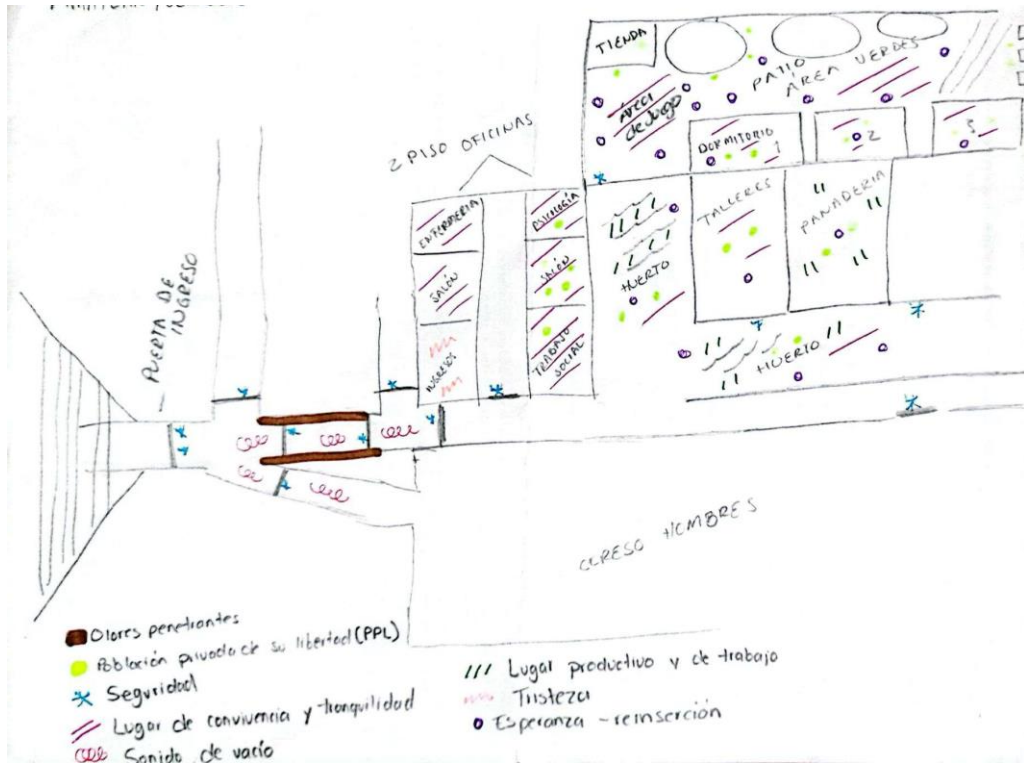 TIENDA
PATIO
ÁREA VERDES
Área
de Juego
DORMITORIO
1
2
3
2 PISO OFICINAS
ENFERMERIA
SALÓN
INGRESOS
PSICOLOGÍA
SALÓN
TRABAJO
SOCIAL
HUERTO
TALLERES
PANADERIA
HUERTO
PUERTA DE
INGRESO
CERESO HOMBRES
Olores penetrantes
Población privada de su libertad (PPL)
Seguridad
Lugar de convivencia y tranquilidad
Sonido de vacío
Lugar productivo y de trabajo
Tristeza
Esperanza - reinserción